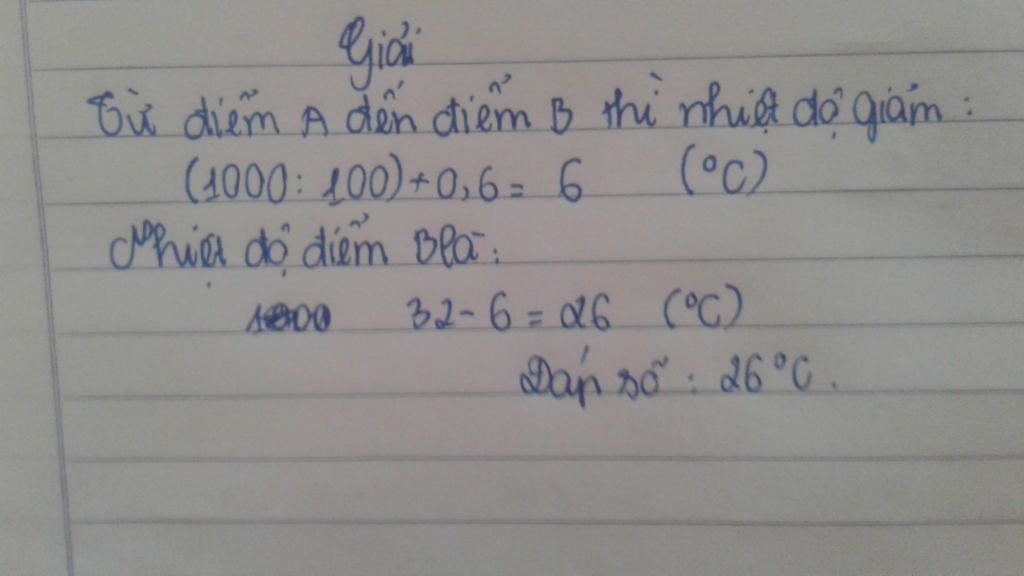 Giải
Từ điểm A đến điểm B thì nhiệt độ giảm:
(1000: 100)+0,6= 6 (°C)
Nhiệt độ điểm B là:
32-6=26 (°C)
Đáp số: 26°C.